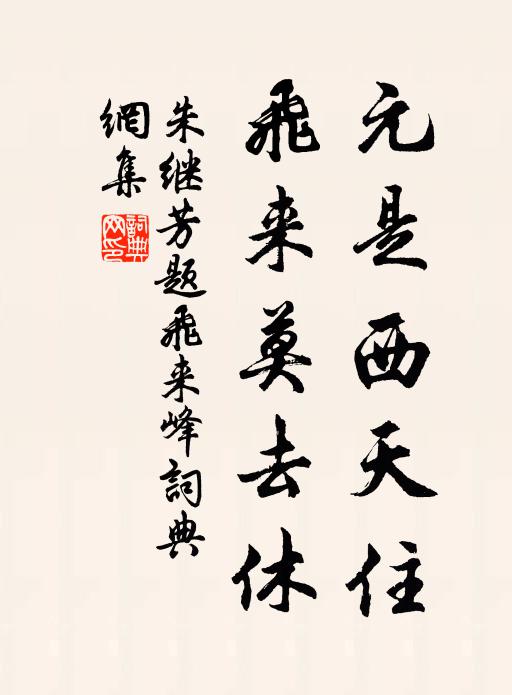 元是西天住
飛来莫去休
朱继芳题飛来峰詞典
網集
詞典
网印